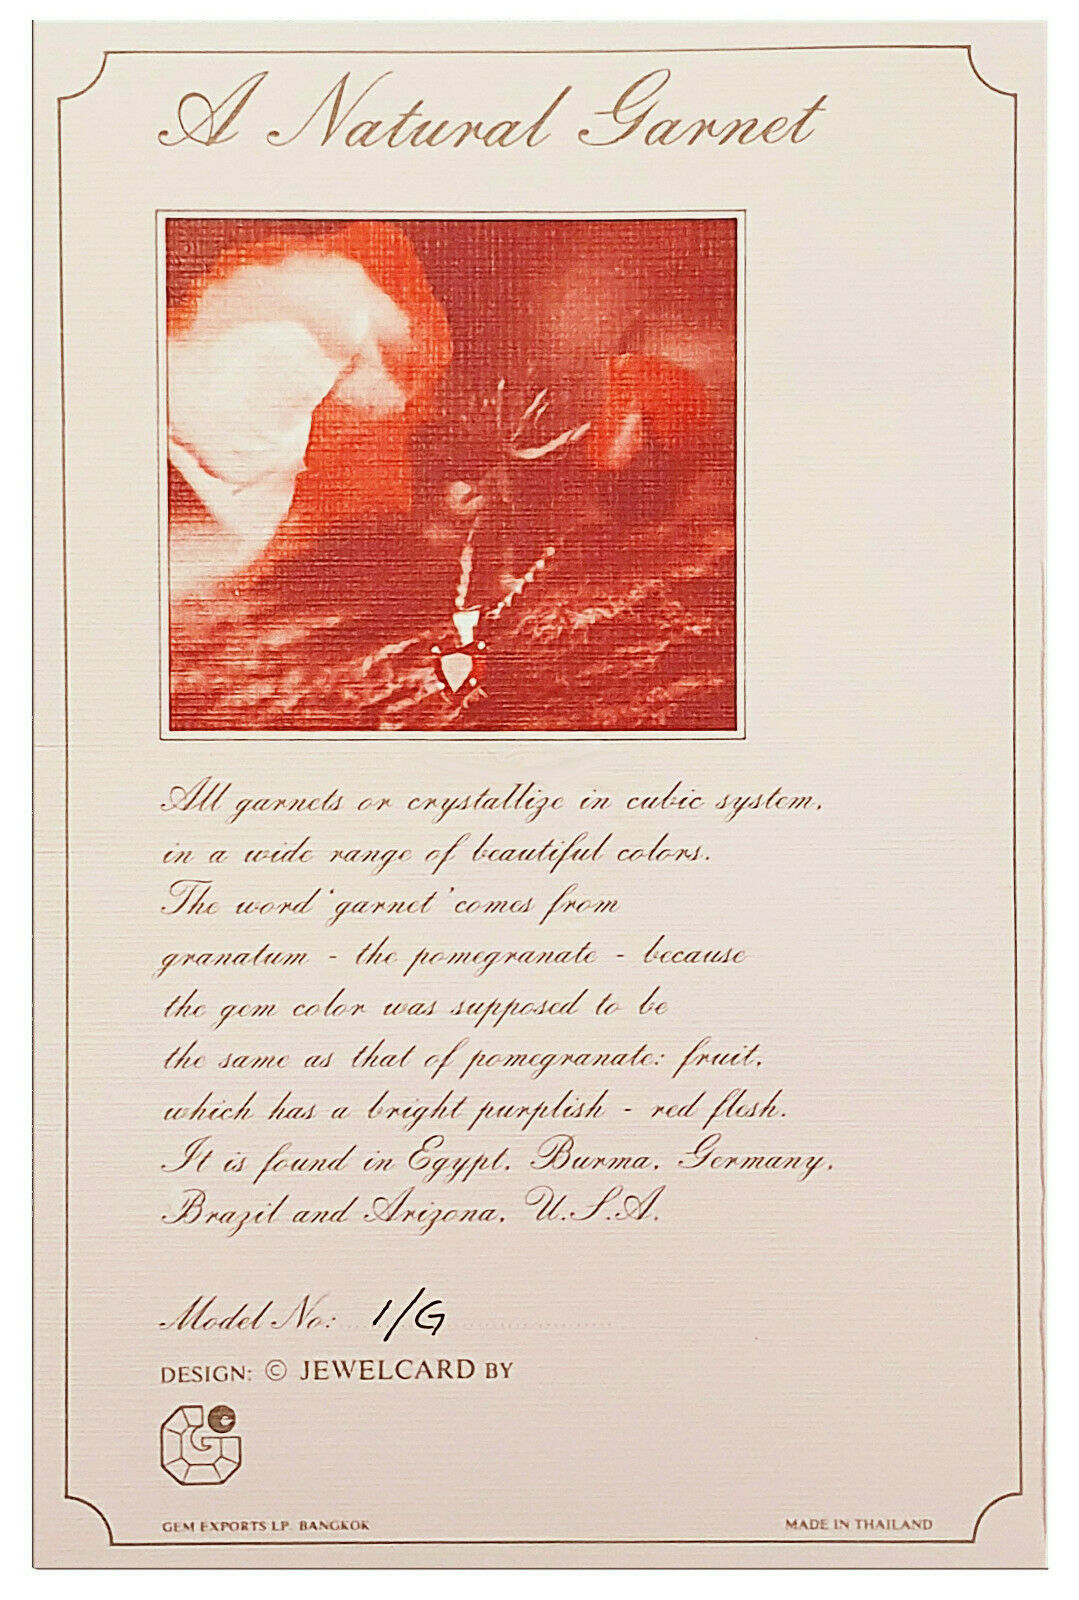 A Natural Garnet
All garnets or crystallize in cubic system,
in a wide range of beautiful colors.
The word 'garnet' comes from
granatum - the pomegranate - because
the gem color was supposed to be
the same as that of pomegranate: fruit,
which has a bright purplish - red flesh.
It is found in Egypt, Burma, Germany,
Brazil and Arizona, U.S.A.
Model No: 1/G
DESIGN: © JEWELCARD BY
GEM EXPORTS LP. BANGKOK
MADE IN THAILAND